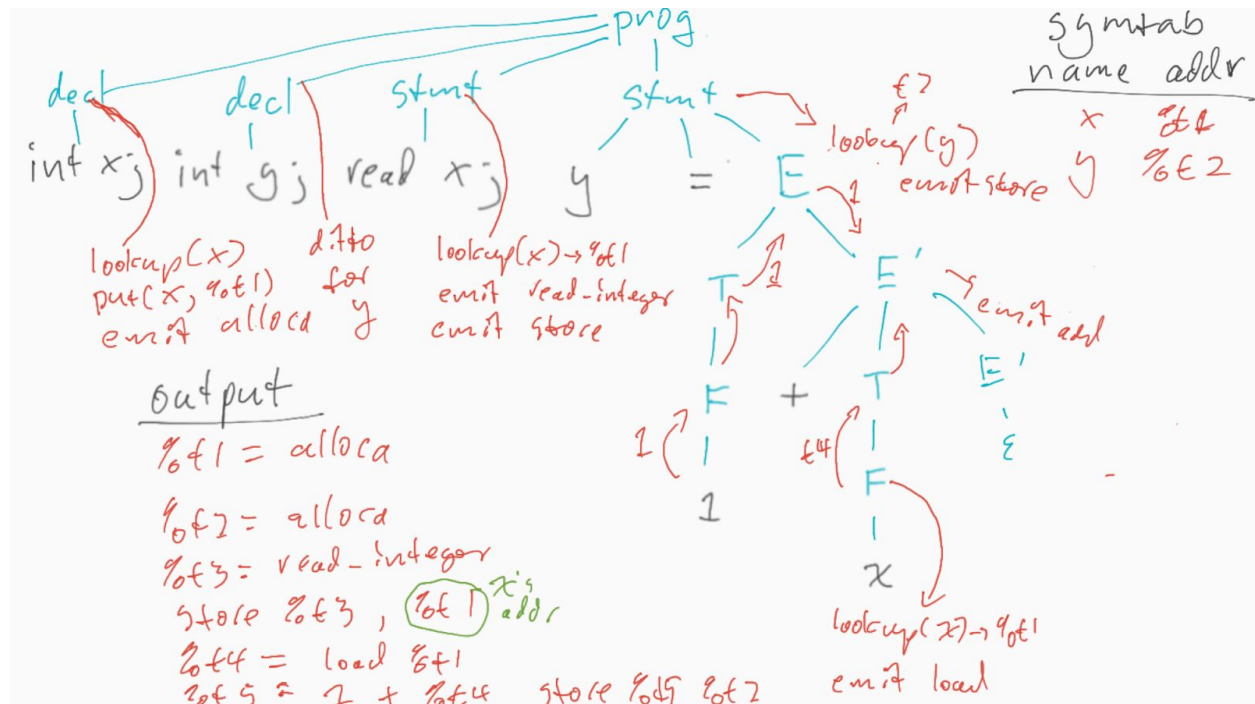 prog
symtab
name addr
x %t1
y %t2
decl decl stmt stmt
t2
lookup(y)
emit store
int x; int y; read x; y = E
1
lookup(x)
put(x, %t1)
emit alloca
ditto
for
y
lookup(x) → %t1
emit read-integer
emit store
T 1 E'
emit add
F + T E'
1 t4 ε
1 F
x
lookup(x) → %t1
emit load
output
%t1 = alloca
%t2 = alloca
%t3 = read-integer
store %t3, %t1 x's addr
%t4 = load %t1
%t5 = 1 + %t4 store %t5 %t2